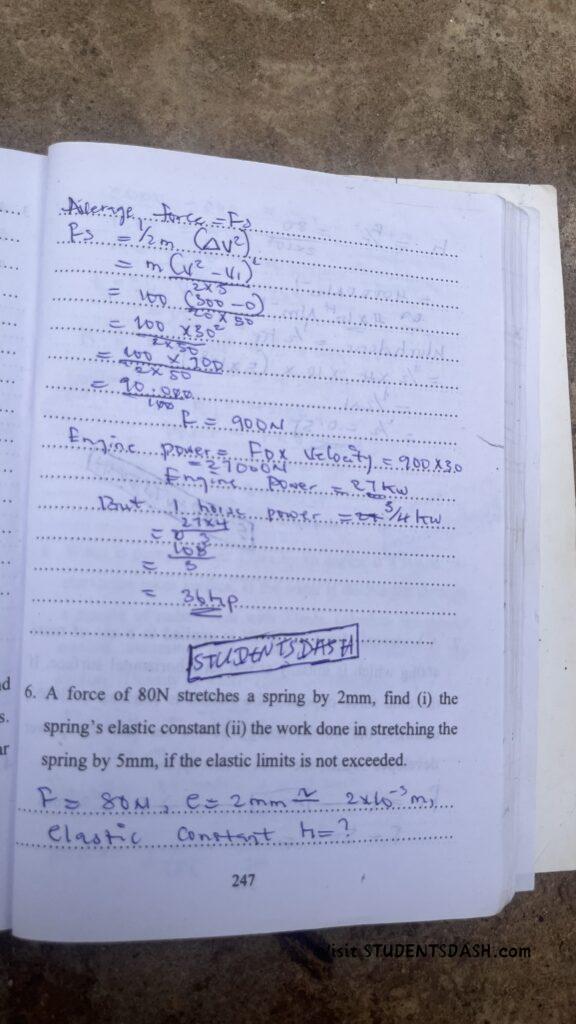 Average, force = Fs
Fs = 1/2 m (Δv²)
= m (v² - v1)²
2 x s
= 100 (300 - 0)
20 x 50
= 100 x 30²
2 x 50
= 100 x 900
2 x 50
= 90.000
100
F = 900N
Engine power = F x velocity = 900 x 30
= 27000N
Engine Power = 27 kw
But 1 horse power = 3/4 kw
= 27x4
3
= 108
3
= 36hp
STUDENTSDASH
6. A force of 80N stretches a spring by 2mm, find (i) the
spring's elastic constant (ii) the work done in stretching the
spring by 5mm, if the elastic limits is not exceeded.
F = 80N, e = 2mm = 2x10⁻³m,
elastic constant k=?
247
Visit STUDENTSDASH.com